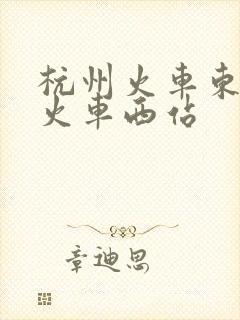 杭州火車東
火車西佔
章迪思